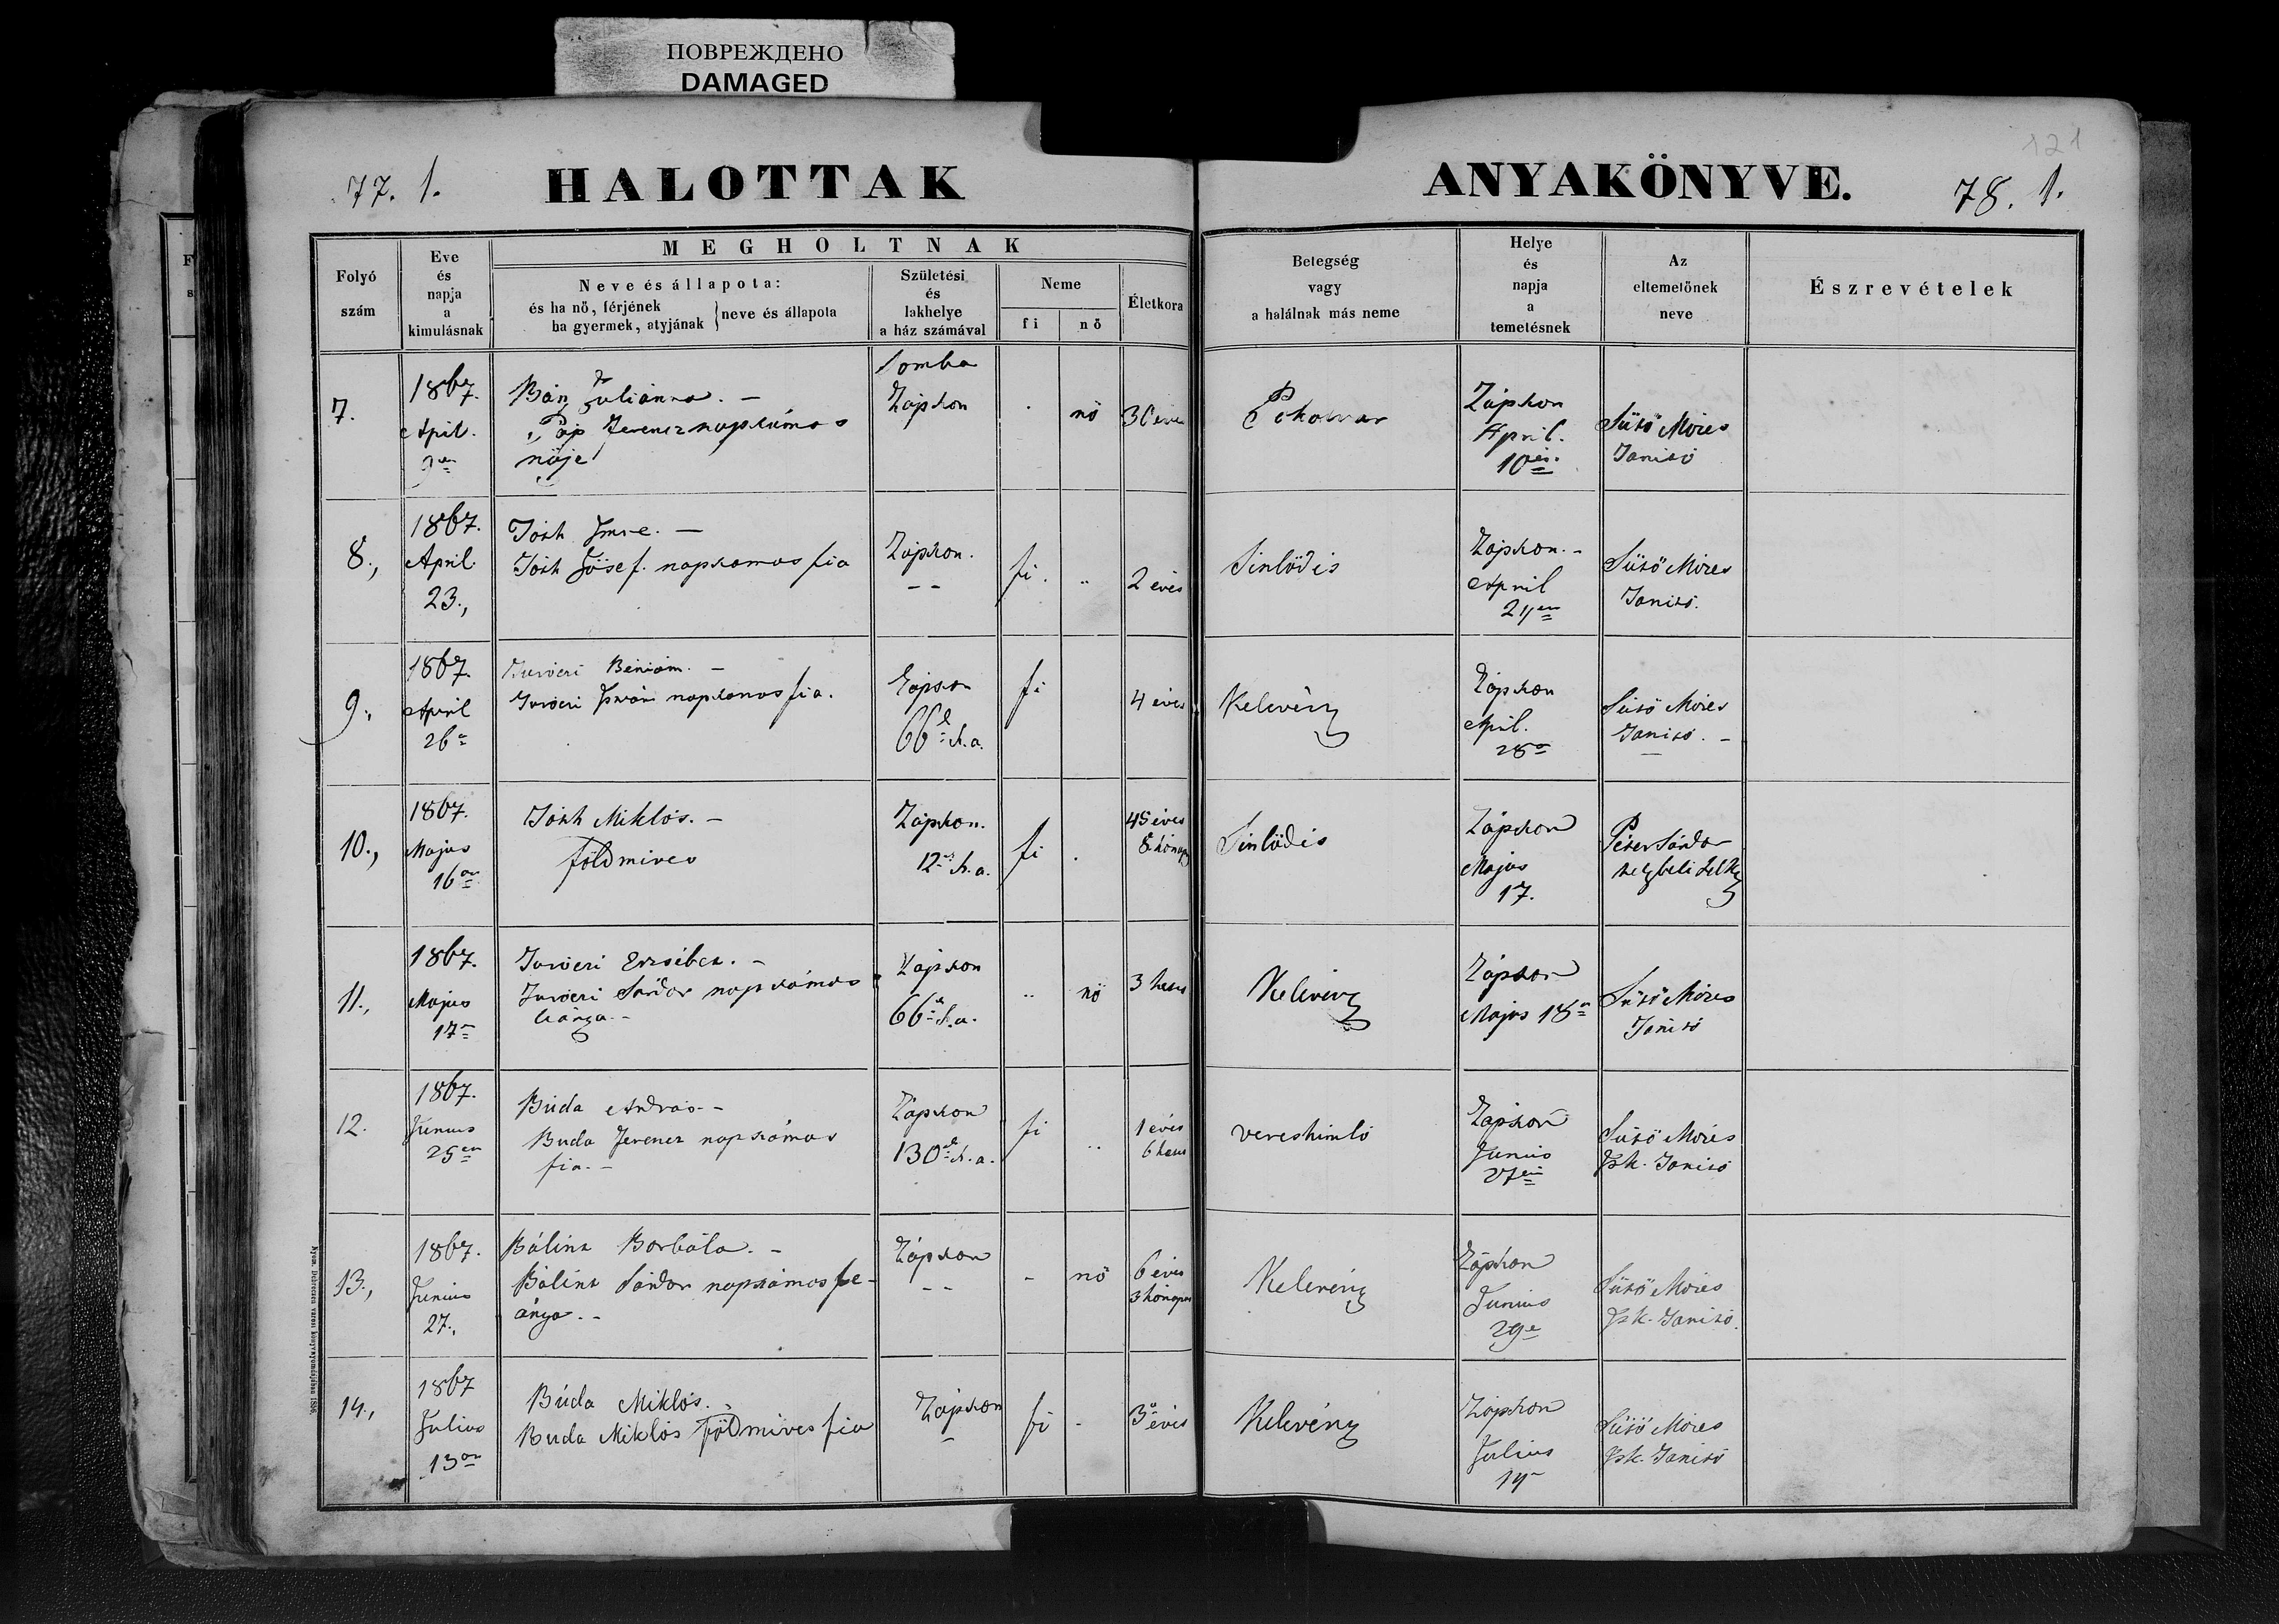 ПОВРЕЖДЕНО
DAMAGED
121
77. 1.
HALOTTAK
ANYAKÖNYVE.
78. 1.
Folyó
szám
Eve
és
napja
a
kimulásnak
MEGHOLTNAK
Neve és állapota:
és ha nő, férjének
ha gyermek, atyjának } neve és állapota
Születési
és
lakhelye
a ház számával
Neme
fi
nő
Életkora
Betegség
vagy
a halálnak más neme
Helye
és
napja
a
temetésnek
Az
eltemetőnek
neve
Észrevételek
7.
1867.
April.
9én
Bán Julianna. –
Páp Ferencz napszámos
nője
Lomba
Zápszon
nő
Zápszon
April.
10én.
Sütő Mózes
Tanító
8.,
1867.
April.
23.,
Tóth Imre. –
Tóth József. napszamos fia
Zápszon.
– –
fi.
2 éves
Sinlődés
Zápszon. –
April
24én
Sütő Mózes
Tanító.
9.,
1867.
April
26a
Béniám. –
napszamos fia.
Zápszon
66k h.a.
fi
4 éves
Kelevény
Zápszon
April.
28a
Sütő Mózes
Tanitó. –
10.,
1867.
Majus
16án
Tóth Miklós. –
földmives
Zápszon.
12ik h.a.
fi
45 éves
8 hónap
Sinlődés
Zápszon
Majus
17.
Péter Sándor
helybeli Lelk
11.,
1867.
Majus
17n
Erzsébet. –
Sándor napszámos
leánya. –
Zápszon
66k h.a.
nő
3 hetes
Kelevény
Zápszon
Majus 18n
Sütő Mózes
Tanitó
12.
1867.
Junius
25en
Búda András. –
Buda Ferencz napszámos
fia. –
Zápszon
130ik h.a.
fi
1 éves
6 hetes
vereshimlő
Zápszon
Junius
27én
Sütő Mózes
Isk. Tanitó
13.,
1867.
Junius
27.,
Bálint Borbála. –
Bálint Sándor napszámos le-
ánya. –
Zápszon
– –
nő
6 éves
3 hónapos
Kelevény
Zápszon
Junius
29e
Sütő Mózes
Isk. Tanitó.
14.,
1867
Julius
13án
Búda Miklós. –
Buda Miklós földmives fia
Zápszon
–
fi
3 éves
Kelevény
Zápszon
Julius
14n
Sütő Mózes
Isk. Tanitó